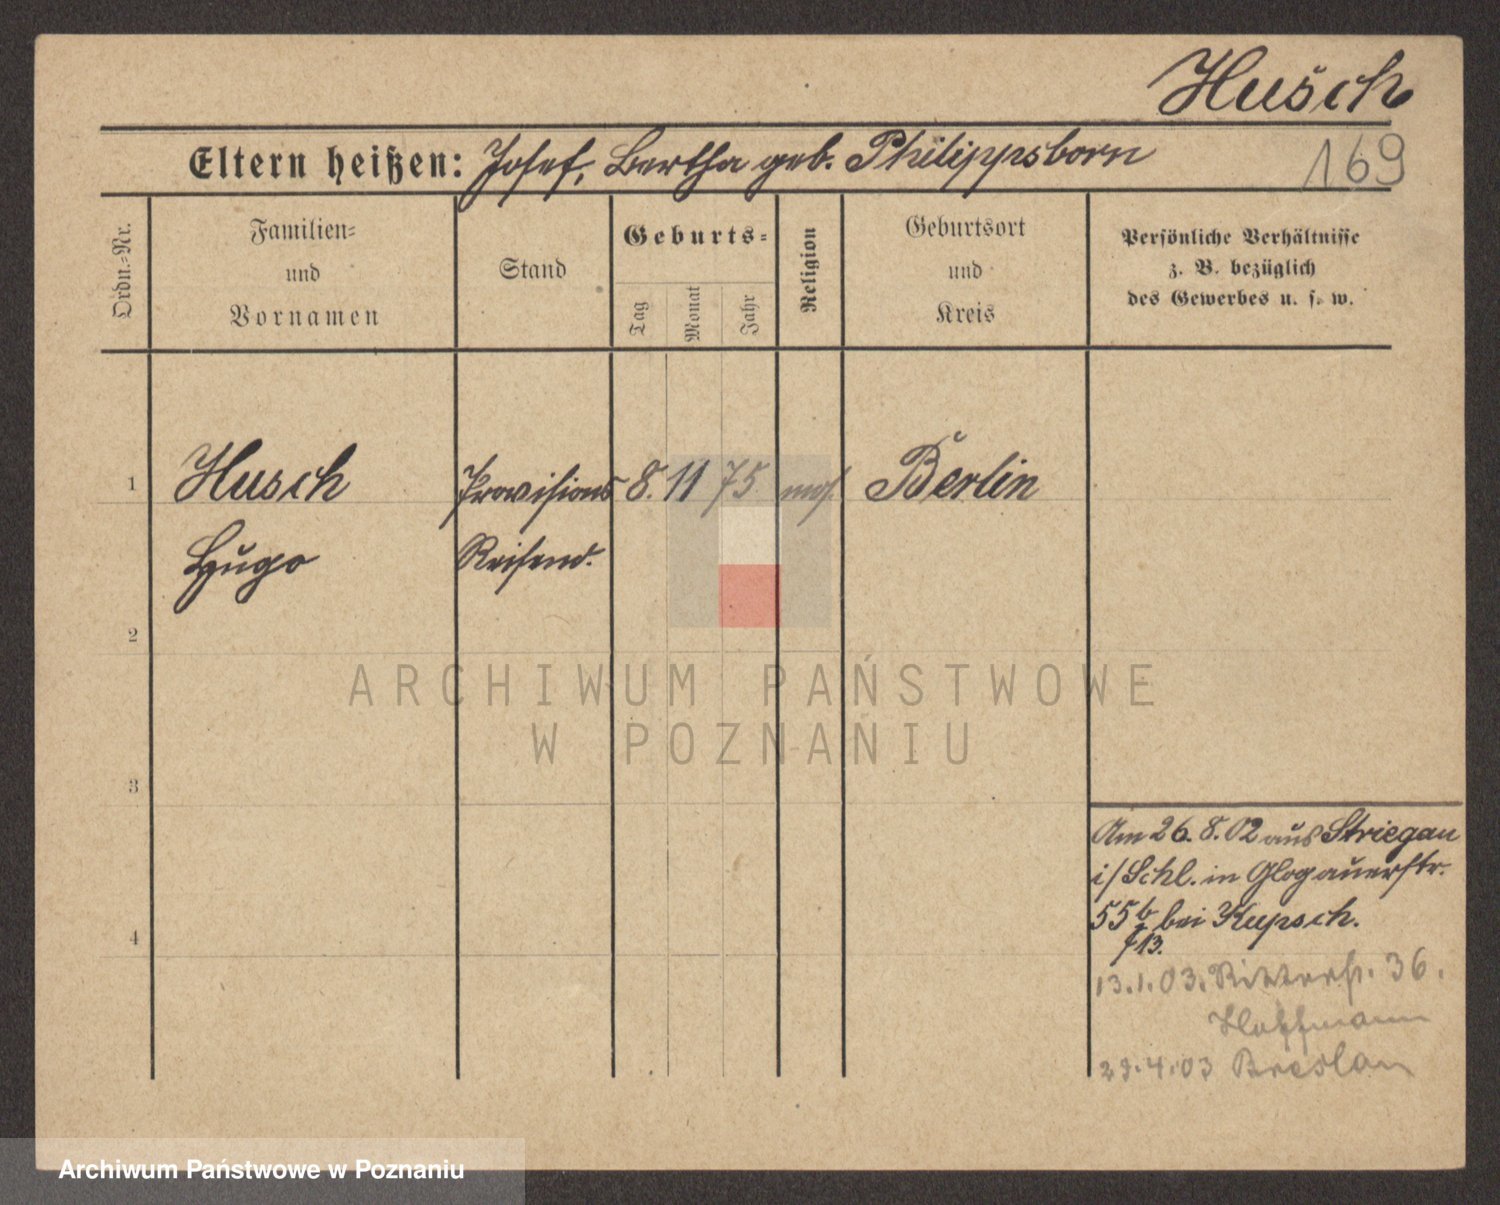 Husch
Eltern heißen: Josef, Bertha geb. Philippsborn
169
Ordn.-Nr.
Familien-
und
Vornamen
Stand
Geburts-
Tag
Monat
Jahr
Religion
Geburtsort
und
Kreis
Persönliche Verhältnisse
z. B. bezüglich
des Gewerbes u. s. w.
1
Husch
Provisions
8. 11 75
mos.
Berlin
Hugo
Reisend.
2
3
4
Am 26.8.02 aus Striegau
i/Schl. in Glogauerstr.
55 b bei Kupsch.
13.
13.1.03. Ritterstr. 36.
Hoffmann
29.4.03 Breslau
ARCHIWUM PAŃSTWOWE
W POZNANIU
Archiwum Państwowe w Poznaniu